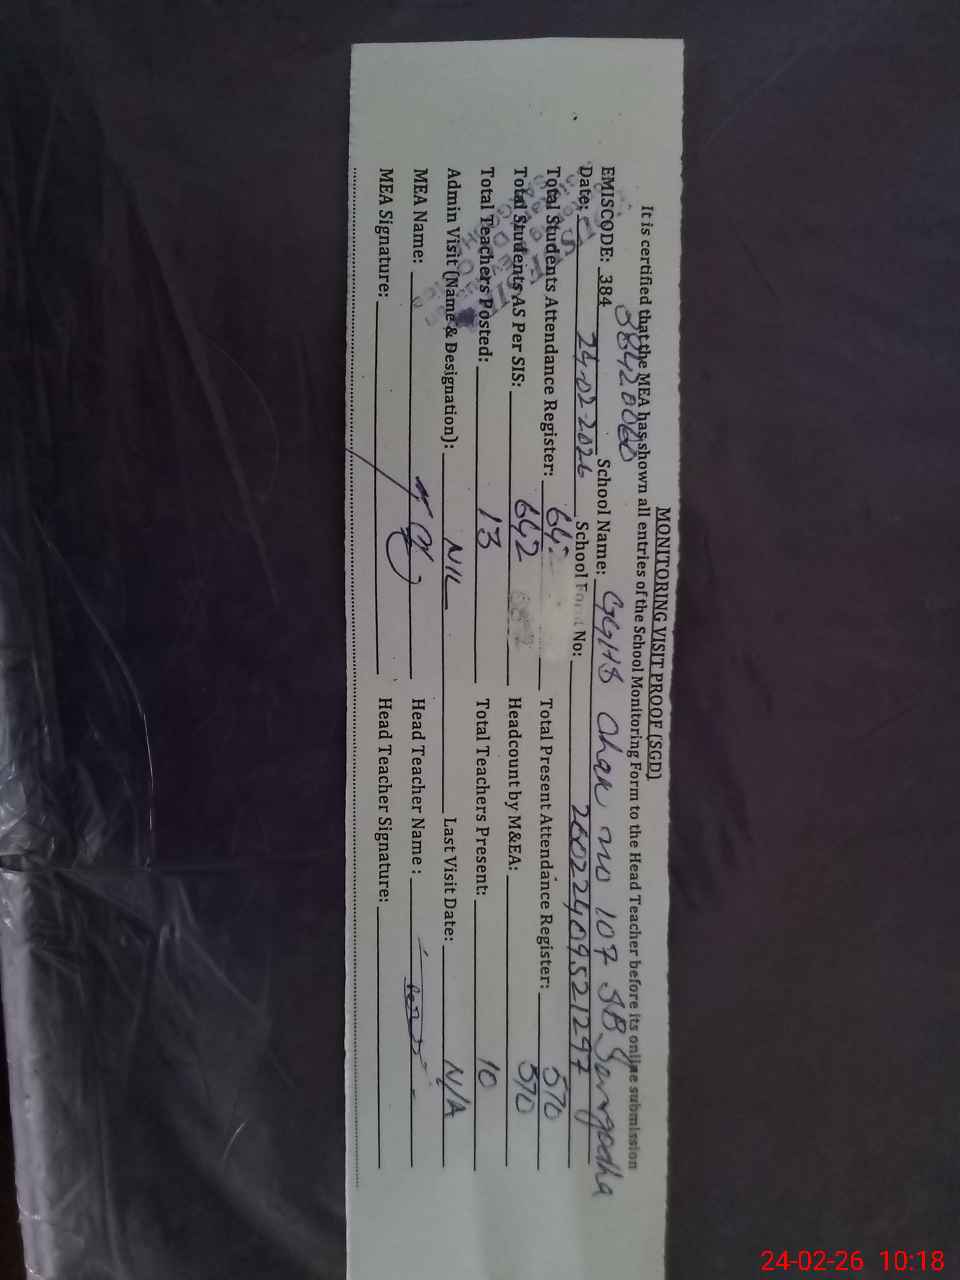 MONITORING VISIT PROOF (SGD)
It is certified that the MEA has shown all entries of the School Monitoring Form to the Head Teacher before its online submission
38420060
EMISCODE: 384 School Name: GGHS Chak no 107 SB Sargodha
Date: 24-02-2026 School Form No: 26022409521297
Total Students Attendance Register: 64 Total Present Attendance Register: 570
Total Students AS Per SIS: 642 Headcount by M&EA: 570
Total Teachers Posted: 13 Total Teachers Present: 10
Admin Visit (Name & Designation): NIL Last Visit Date: N/A
MEA Name: Head Teacher Name :
MEA Signature: Head Teacher Signature:
24-02-26 10:18